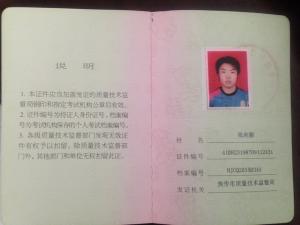 说 明
1. 本证件应当加盖发证的质量技术监
督局钢印和指定考试机构公章后有效。
2. 证件编号为持证人身份证号，档案编
号为考试机构保存的个人考试档案编号。
3. 各级质量技术监督部门发现无效证
件有权予以扣留，除质量技术监督部
门外，其他部门和单位无权扣留此证。
姓 名
证件编号
档案编号
发证机关 质量技术监督局